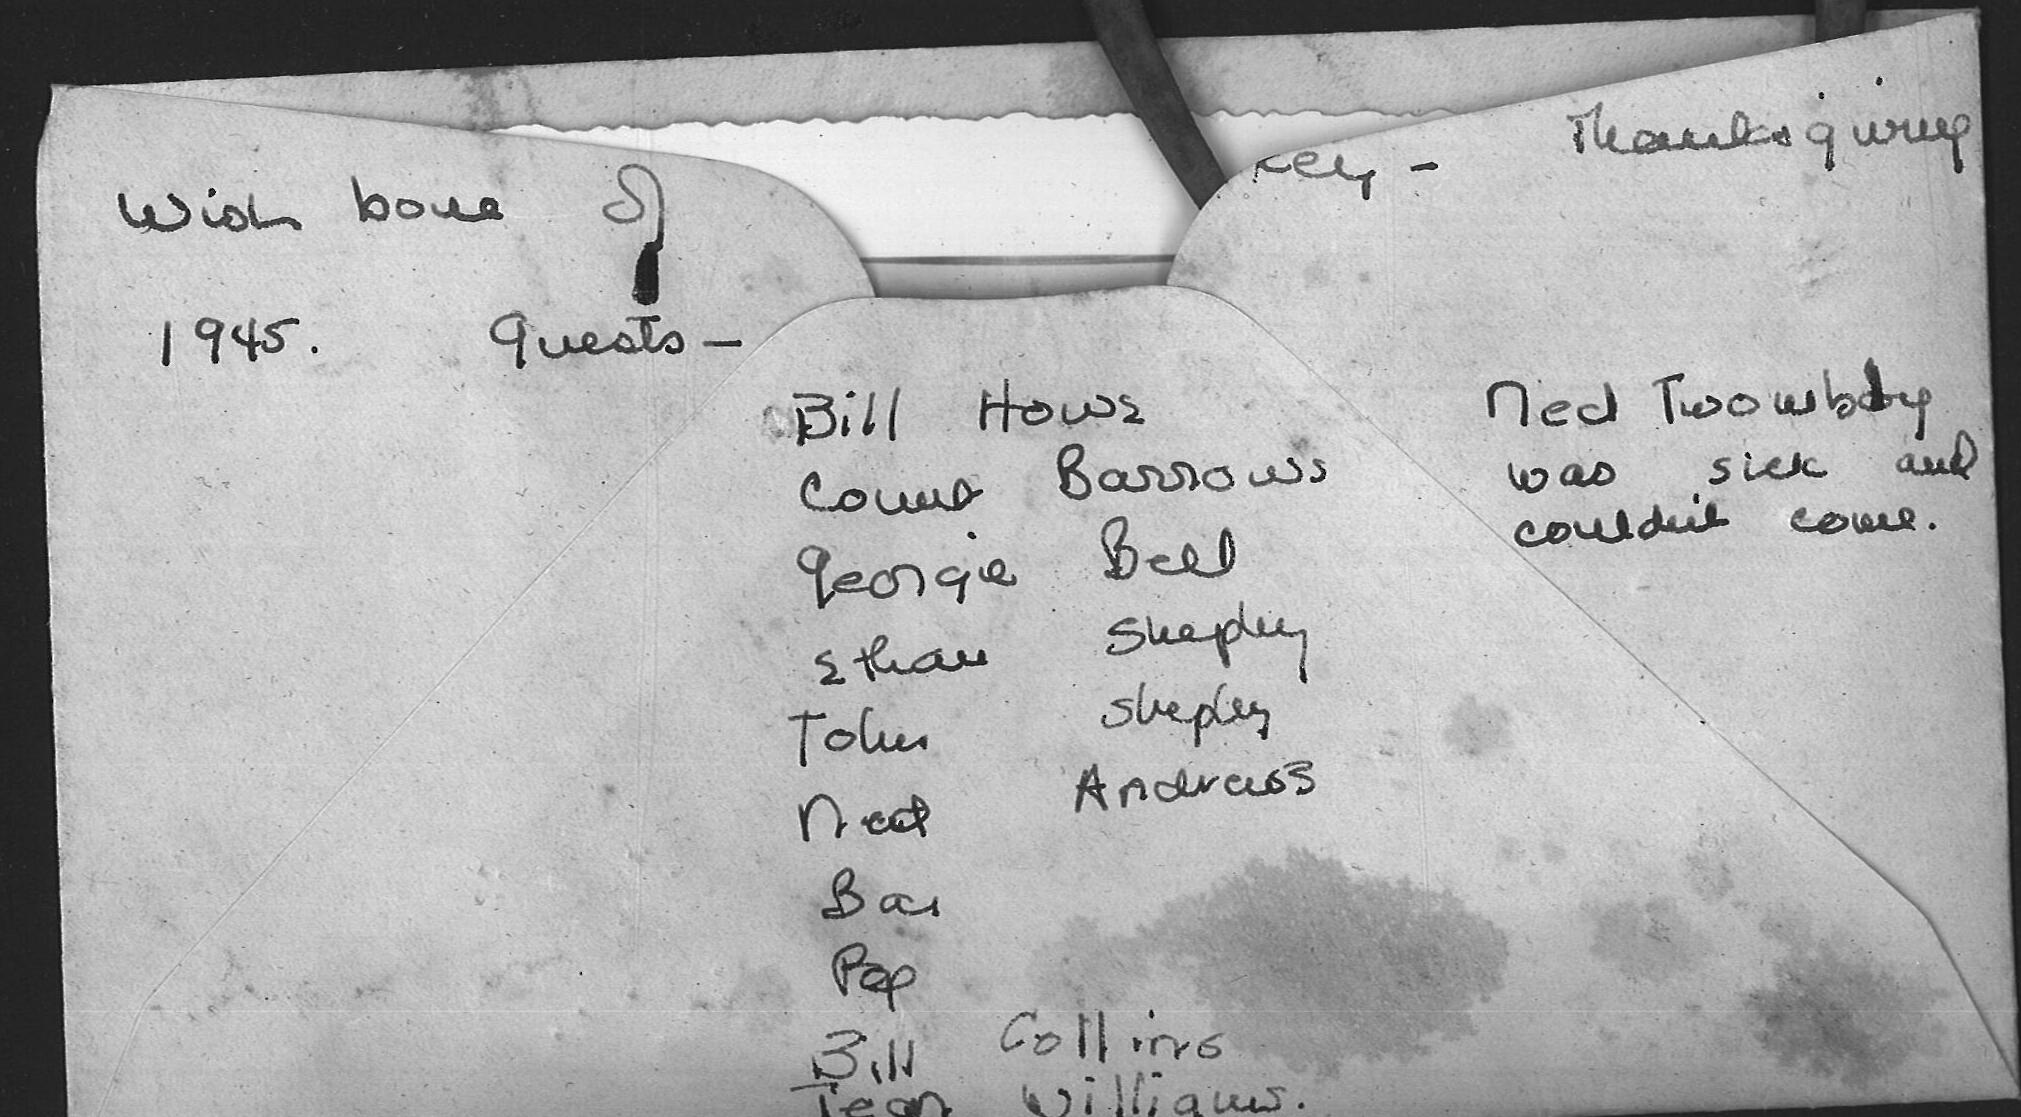 Wish bone of key - Thanksgiving
1945. Guests -
Bill Hows
Count Barrows
Georgie Bell
Ethan Shepley
John Shepley
Ned Andrews
Bar
Pop
Bill Collins
Jean Williams.
Ned Twombly
was sick and
couldn't come.